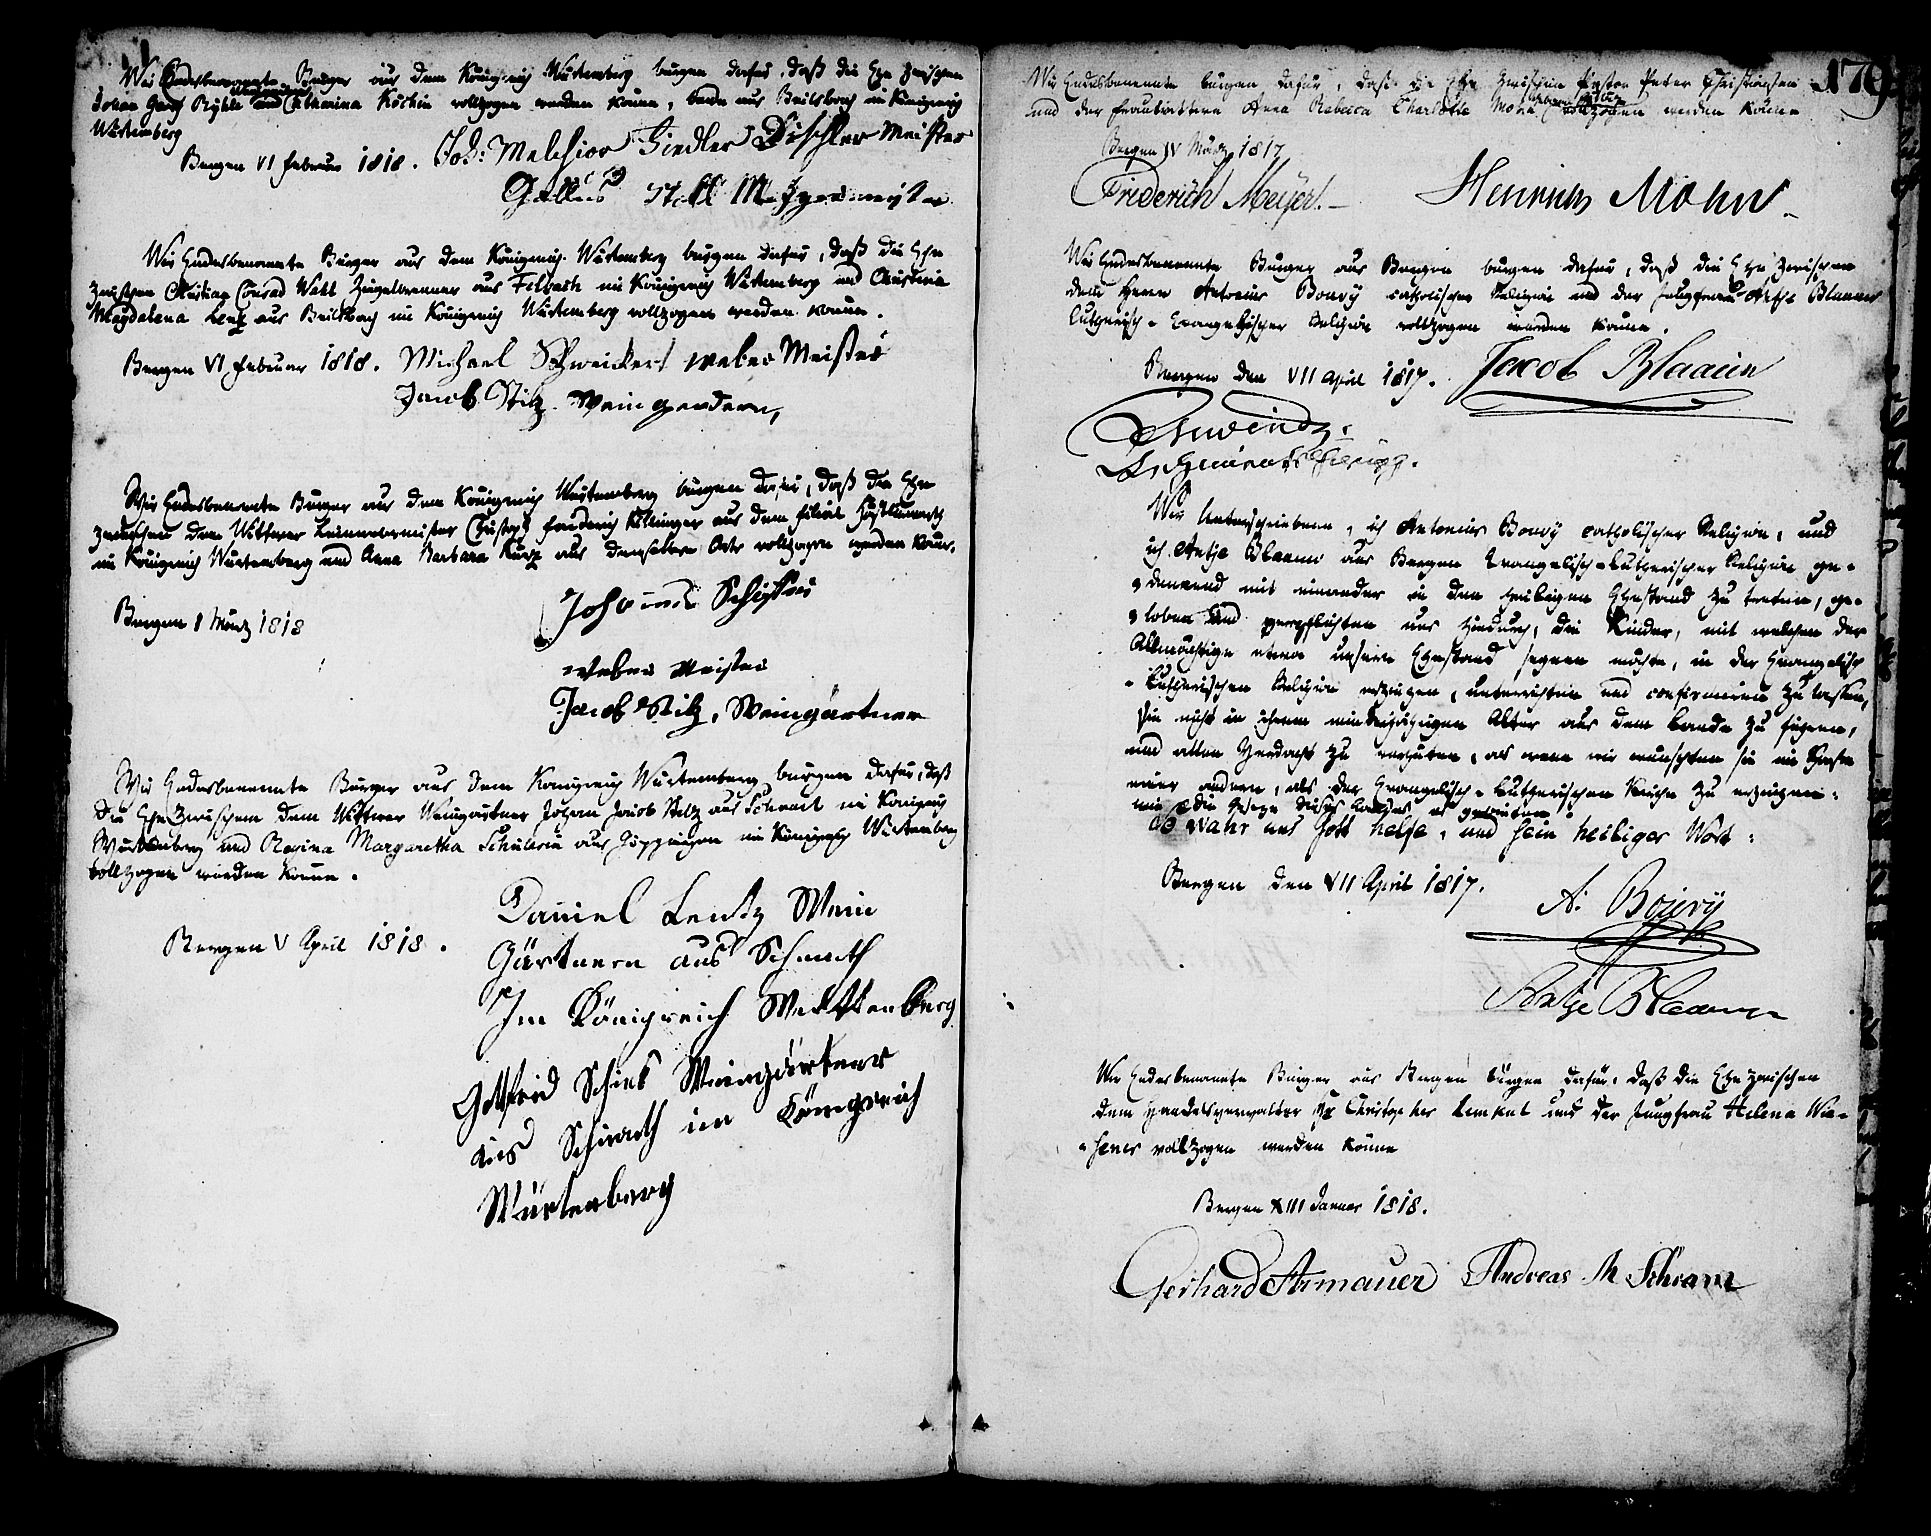 Wir Endesbenannte Burger aus dem Königreich Würtemberg burgen dafur, daß die Ehe zwischen
Johan Georg und Catharina Köchin vollzogen werden könne, beide aus Beilsbach im Königreich
Würtemberg
Bergen VI Februar 1818. Joh: Melchior Fiedler Dischler Meister
Gallus Metzgermeister
Wir Endesbenannte Burger aus dem Königreich Würtemberg burgen dafur, daß die Ehe
zwischen Christian Conrad Ziegelbrenner aus Felbach im Königreich Würtemberg und Christina
Magdalena Lenz aus Beilsbach im Königreich Würtemberg vollzogen werden könne.
Bergen VI Februar 1818. Michael Schweickert weber Meister
Jacob Stilz. Weingerdern,
Wir Endesbenannte Burger aus dem Königreich Würtemberg burgen dafur, daß die Ehe
zwischen dem Wittwer Leinwebermeister Christoph Friederich aus dem Filial
im Königreich Würtemberg und Anna Barbara Kurz aus demselben Orte vollzogen werden könne.
Bergen I März 1818
Johannes
weber Meister
Jacob Stilz, Weingärtner
Wir Endesbenannte Burger aus dem Königreich Würtemberg burgen dafur, daß
die Ehe zwischen dem Wittwer Weingartner Johan Jacob Stelz aus Schnait im Königreich
Würtemberg und Rosina Margaretha Schülerin aus Göppingen im Königreich Würtemberg
vollzogen werden könne.
Daniel Lentz Wein
Gärtnern aus Schnath
Bergen V April 1818.
Im Königreich Werttenberg
Gottfrid Schiek Weingärtner
aus Schnath im Königreich
Würtenberg
179
Wir Endesbenannte burgen dafur, daß die Ehe zwischen Peter Christiansen
und der Anna Rebecca Charlotte Mohn vollzogen werden könne
Bergen IV März 1817
Friderich Meyer.
Henrich Mohn
Wir Endesbenannte Burger aus Bergen burgen dafur, daß die Ehe zwischen
dem Herrn Antonius Bouvÿ catholischer Religion und der Jungfrau Antje Blaauw
Lutherisch-Evangelischer Religion vollzogen werden könne.
Bergen den VII April 1817. Jacob Blaauw
Wir Unterschriebene, ich Antonius Bouvÿ catholischer Religion, und
ich Antje Blaauw aus Bergen Evangelisch-Lutherischer Religion ge-
denkend mit einander in den heiligen Ehestand zu treten, ge-
loben und verpflichten uns hiedurch, die Kinder, mit welchen der
Allmächtige etwa unsern Ehestand segnen möchte, in der Evangelisch
-Lutherischen Religion erziehen, unterrichten und confirmiren zu lassen,
sie nicht in ihrem minderjährigen Alter aus dem Lande zu führen,
und allen Verdacht zu verhüten, als wenn wir wünschten sie im Schoße
einer andern, als der Evangelisch-Lutherischen Kirche zu erziehen:
wie die Geseze dieses Landes es gebieten.
So wahr uns Gott helfe, und sein heiliges Wort:
Bergen den VII April 1817.
A: Bouvÿ
Antje Blaauw
Wir Endesbenannte Burger aus Bergen bürgen dafür, daß die Ehe zwischen
dem Handelsverwalter Hr Christopher Lemkul und der Jungfrau Helena Wie-
-sener vollzogen werden könne
Bergen XIII Januar 1818.
Gerhard Armauer Andreas M Schram